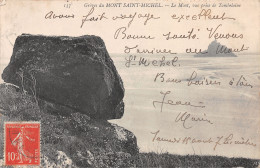 Grèves du MONT SAINT-MICHEL. - Le Mont, vue prise de Tombelaine
Avons fait voyage excellent
Bonne santé Venons
d'arriver au Mont
St Michel.
Bons baisers à tous
Jean
Marie
10